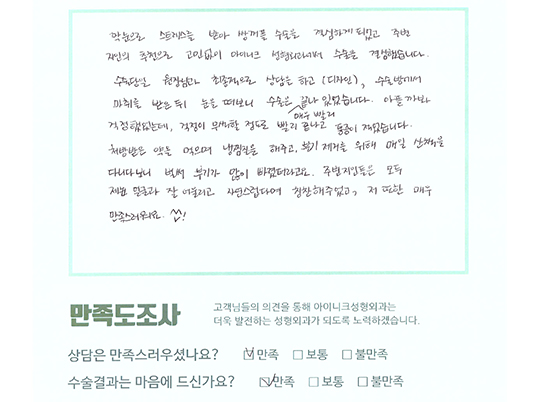 막눈으로 스트레스를 받아 쌍꺼풀 수술을 결정하게 되었고 주변
지인의 추천으로 고민없이 아이니크 성형외과에서 수술을 결정했습니다.
수술당일 원장님과 최종적으로 상담을 하고 (디자인), 수술방에서
마취를 받은 뒤 눈을 떠보니 수술은 끝나 있었습니다. 아플까봐
걱정했었는데, 걱정이 무색할 정도로 매우 빨리 빨리 끝나고 통증이 없었습니다.
처방받은 약을 먹으며 냉찜질을 해주고, 붓기 제거를 위해 매일 산책을
다니다보니 벌써 붓기가 많이 빠졌더라고요. 주변지인들은 모두
제 얼굴과 잘 어울리고 자연스럽다며 칭찬해주었고, 저 또한 매우
만족스러워요. ^^!
만족도조사
고객님들의 의견을 통해 아이니크성형외과는
더욱 발전하는 성형외과가 되도록 노력하겠습니다.
상담은 만족스러우셨나요? ☑만족 □보통 □불만족
수술결과는 마음에 드신가요? ☑만족 □보통 □불만족